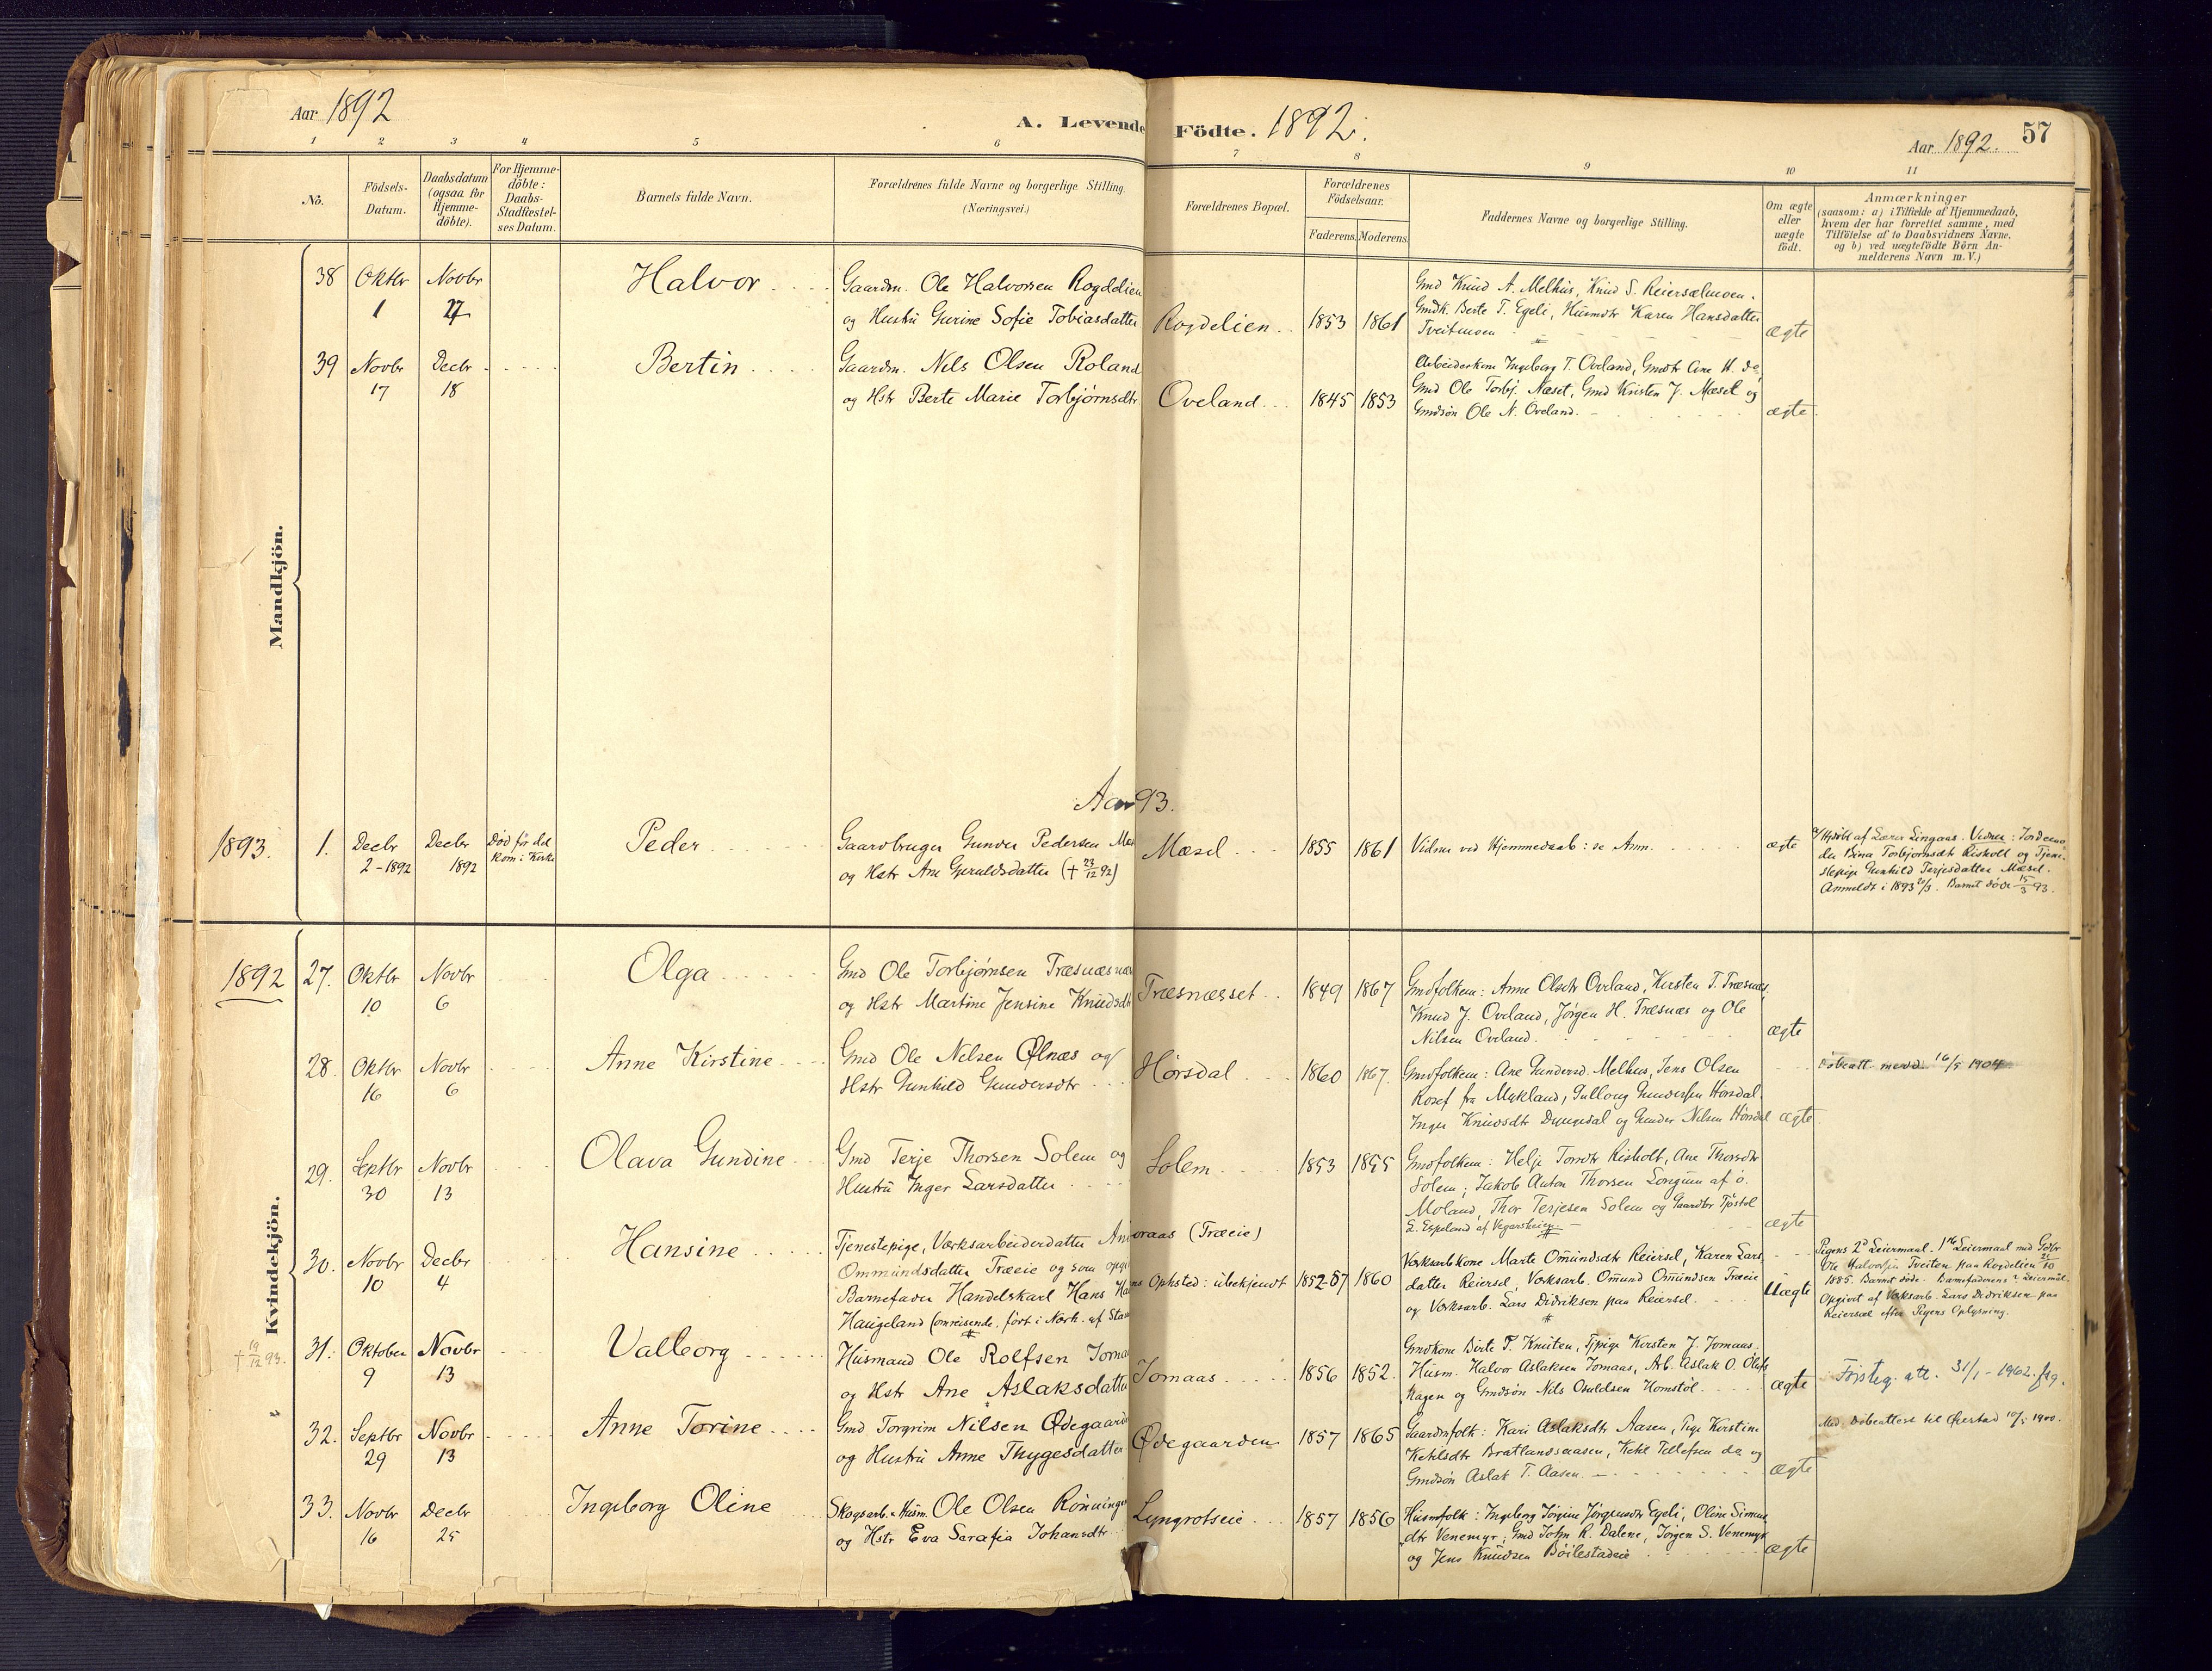 Aar 1892
A. Levende Födte. 1892.
Aar 1892.
57
1 2 3 4 5 6 7 8 9 10 11
No.
Födsels-Datum.
Daabsdatum (ogsaa for Hjemme-döbte).
For Hjemme-döbte: Daabs-Stadfæstel-ses Datum.
Barnets fulde Navn.
Forældrenes fulde Navne og borgerlige Stilling.
(Næringsvei.)
Forældrenes Bopæl.
Forældrenes Födselsaar.
Faderens. Moderens.
Faddernes Navne og borgerlige Stilling.
Om ægte eller uægte födt.
Anmærkninger
(saasom: a) i Tilfælde af Hjemmedaab,
hvem der har forrettet samme, med
Tilföielse af to Daabsvidners Navne,
og b) ved uægtefödte Börn An-
melderens Navn m. V.)
Mandkjön.
38 Oktbr 1 Novbr 27 Halvor
Gaardm. Ole Halvorsen Rogdelien
og Hustru Gurine Sofie Tobiasdatter
Rogdelien 1853 1861
Gmd Knud A. Melhus, Knud S. Reiersølmoen.
Gmdk. Berte T. Egeli, Husmdtr Karen Hansdatter
Tveitmoen
ægte
39 Novbr 17 Decbr 18 Bertin
Gaardm. Nils Olsen Roland
og Hstr Berte Marie Torbjørnsdtr
Oveland 1845 1853
Arbeiderkone Ingeborg T. Oveland, Gmdtr Ane H. do
Gmd Ole Torbj. Næset, Gmd Kristen J. Mæsel og
Gmdsøn Ole N. Oveland.
ægte
Aar 93.
1893. 1. Decbr 2-1892 Decbr 1892
Død før det kom i Kirke
Peder
Gaardbruger Gunder Pedersen Mæs
og Hstr Ane Gjeruldsdatter († 23/12 92)
Mæsel 1855 1861
Vidner ved Hjemmedaab: se Anm.
ægte
Hjdøbt af Lærer Lingaas. Vidner: Jordemo-
der Bina Torbjørnsdtr Risholt og Tjene-
stepige Gunhild Terjesdatter Mæsel.
Anmeldt i 1893 20/3. Barnet døde 15/3 93.
Kvindekjön.
1892 27. Oktbr 10 Novbr 6 Olga
Gmd Ole Torbjørnsen Træsnæs
og Hstr Martine Jensine Knudsdtr
Træsnæsset 1849 1867
Gmdfolkene: Anne Olsdtr Oveland, Kirsten T. Træsnæs,
Knud J. Oveland, Jørgen H. Træsnæs og Ole
Nilsen Oveland.
ægte
28. Oktbr 16 Novbr 6 Anne Kirstine
Gmd Ole Nelsen Ølnæs og
Hstr Gunhild Gundersdtr
Hørsdal 1860 1867.
Gmdfolkene: Ane Gundersd. Melhus, Jens Olsen
Rosef fra Mykland, Gulloug Gundersen Hørsdal.
Inger Knudsdtr Dyngedal og Gunder Nilsen Hørsdal
ægte
Døbeatt. 16/5 1904
29. Septbr 30 Novbr 13 Olava Gundine
Gmd Terje Thorsen Solem og
Hustru Inger Larsdatter
Solem 1853 1855
Gmdfolkene: Helje Torsdtr Risholt, Ane Thorsdtr
Solem; Jakob Anton Thorsen Longum af ø.
Moland, Thor Terjesen Solem og Gaardbr Tjøstol
E. Espeland af Vegarsheien
ægte
30. Novbr 10 Decbr 4 Hansine
Tjenestepige, Værksarbeiderdatter
Ommundsdatter Træeie og som
Barnefader Handelskarl Hans
Haugeland (omreisende, født i
oraas (Træeie)
Ophsted: ubekjendt 1852-57 1860
Værksarbkone Marte Omundsdtr Reiersøl, Karen Lars-
datter Reiersøl, Værksarb. Omund Omundsen Træeie
og Værksarb. Lars Didriksen paa Reiersøl.
Uægte
Pigens 2d Leiermaal. 1ste Leiermaal med Gdbr
Ole Halvorsen Tveiten paa Rogdelien
1885. Barnet døde. Barnefaderens ? Leiermål.
Opgivet af Værksarb. Lars Didriksen paa
Reiersøl efter Pigens Oplysning.
† 19/12 93. 31. Oktober 9 Novbr 13 Valborg
Husmand Ole Rolfsen Jomaas
og Hstr Ane Aslaksdatter
Jomaas 1856 1852.
Gmdkone Birte T. Knuten, Tjpige Kirsten J. Jomaas.
Husm. Halvor Aslaksen Jomaas, Arb. Aslak O. Olsen
Hagen og Gmdsøn Nils Osuldsen Homstøl.
ægte
Førsteg. att. 31/1 - 1962.
32. Septbr 29 Novbr 13 Anne Torine
Gmd Torgrim Nilsen Ødegaarden
og Hustru Anne Thygesdatter
Ødegaarden 1857 1865
Gaardmfolk: Kari Aslaksdtr Aasen, Pige Kirstine
Ketilsdtr Bratlandsaasen, Ketil Tellefsen do og
Gmdsøn Aslak T. Aasen.
ægte
Med Døbeattest til Øiestad 10/5 1900.
33. Novbr 16 Decbr 25 Ingeborg Oline
Skogsarb. & Husm. Ole Olsen Rønningen
og Hstr Eva Serafia Johansdtr
Lyngrotseie 1857 1856
Husmfolk: Ingeborg Jørgine Jørgensdtr Egeli, Oline Simons
dtr Venemyr; Gmd John R. Dalene, Jørgen S. Venemyr
og Jens Knudsen Bøilestadeie
ægte